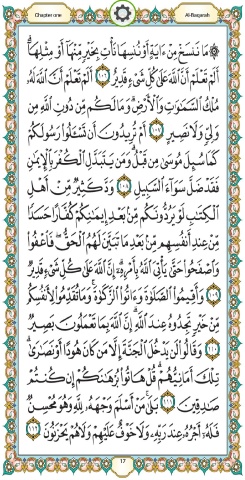 Chapter one Al-Baqarah
۞ مَا نَنسَخْ مِنْ ءَايَةٍ أَوْ نُنسِهَا نَأْتِ بِخَيْرٍ مِّنْهَآ أَوْ مِثْلِهَآ ۗ
أَلَمْ تَعْلَمْ أَنَّ ٱللَّهَ عَلَىٰ كُلِّ شَىْءٍ قَدِيرٌ ١٠٦ أَلَمْ تَعْلَمْ أَنَّ ٱللَّهَ لَهُۥ
مُلْكُ ٱلسَّمَٰوَٰتِ وَٱلْأَرْضِ ۗ وَمَا لَكُم مِّن دُونِ ٱللَّهِ مِن
وَلِىٍّ وَلَا نَصِيرٍ ١٠٧ أَمْ تُرِيدُونَ أَن تَسْـَٔلُوا۟ رَسُولَكُمْ
كَمَا سُئِلَ مُوسَىٰ مِن قَبْلُ ۗ وَمَن يَتَبَدَّلِ ٱلْكُفْرَ بِٱلْإِيمَٰنِ
فَقَدْ ضَلَّ سَوَآءَ ٱلسَّبِيلِ ١٠٨ وَدَّ كَثِيرٌ مِّنْ أَهْلِ
ٱلْكِتَٰبِ لَوْ يَرُدُّونَكُم مِّنۢ بَعْدِ إِيمَٰنِكُمْ كُفَّارًا حَسَدًا
مِّنْ عِندِ أَنفُسِهِم مِّنۢ بَعْدِ مَا تَبَيَّنَ لَهُمُ ٱلْحَقُّ ۖ فَٱعْفُوا۟
وَٱصْفَحُوا۟ حَتَّىٰ يَأْتِىَ ٱللَّهُ بِأَمْرِهِۦٓ ۗ إِنَّ ٱللَّهَ عَلَىٰ كُلِّ شَىْءٍ قَدِيرٌ
١٠٩ وَأَقِيمُوا۟ ٱلصَّلَوٰةَ وَءَاتُوا۟ ٱلزَّكَوٰةَ ۚ وَمَا تُقَدِّمُوا۟ لِأَنفُسِكُم
مِّنْ خَيْرٍ تَجِدُوهُ عِندَ ٱللَّهِ ۗ إِنَّ ٱللَّهَ بِمَا تَعْمَلُونَ بَصِيرٌ
١١٠ وَقَالُوا۟ لَن يَدْخُلَ ٱلْجَنَّةَ إِلَّا مَن كَانَ هُودًا أَوْ نَصَٰرَىٰ ۗ
تِلْكَ أَمَانِيُّهُمْ ۗ قُلْ هَاتُوا۟ بُرْهَٰنَكُمْ إِن كُنتُمْ
صَٰدِقِينَ ١١١ بَلَىٰ مَنْ أَسْلَمَ وَجْهَهُۥ لِلَّهِ وَهُوَ مُحْسِنٌ
فَلَهُۥٓ أَجْرُهُۥ عِندَ رَبِّهِۦ وَلَا خَوْفٌ عَلَيْهِمْ وَلَا هُمْ يَحْزَنُونَ ١١٢
17